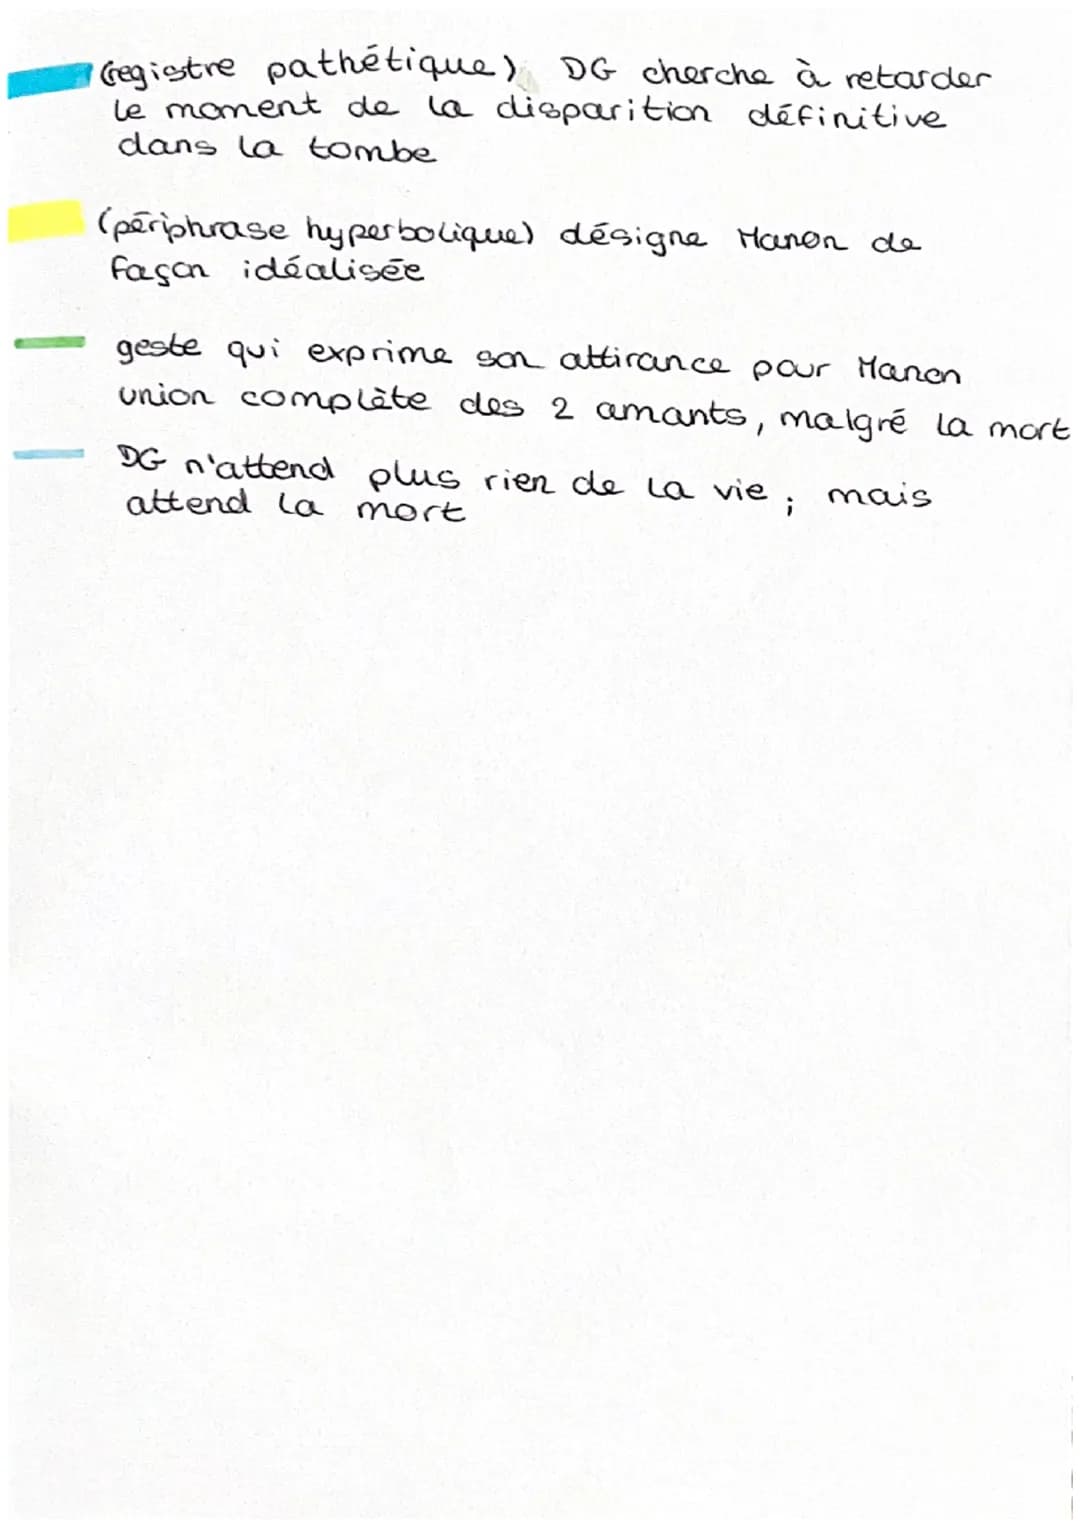 (registre pathétique) DG cherche à retarder
le moment de la disparition définitive
dans la tombe
(périphrase hyperbolique) désigne Manon de
façon idéalisée
geste qui exprime son attirance pour Manon
union complète des 2 amants, malgré la mort
DG n'attend plus rien de la vie ; mais
attend la mort